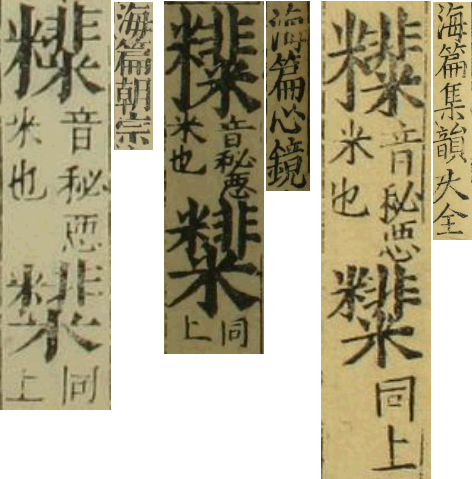 音秘惡
米也
同
上
海篇朝宗
音秘惡
米也
同
上
海篇心鏡
音秘惡
米也
同上
海篇集韻大全